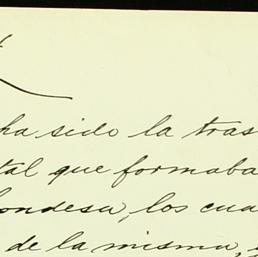 ha sido la tras
tal que formaba
ondesa, los cua
de la misma, y